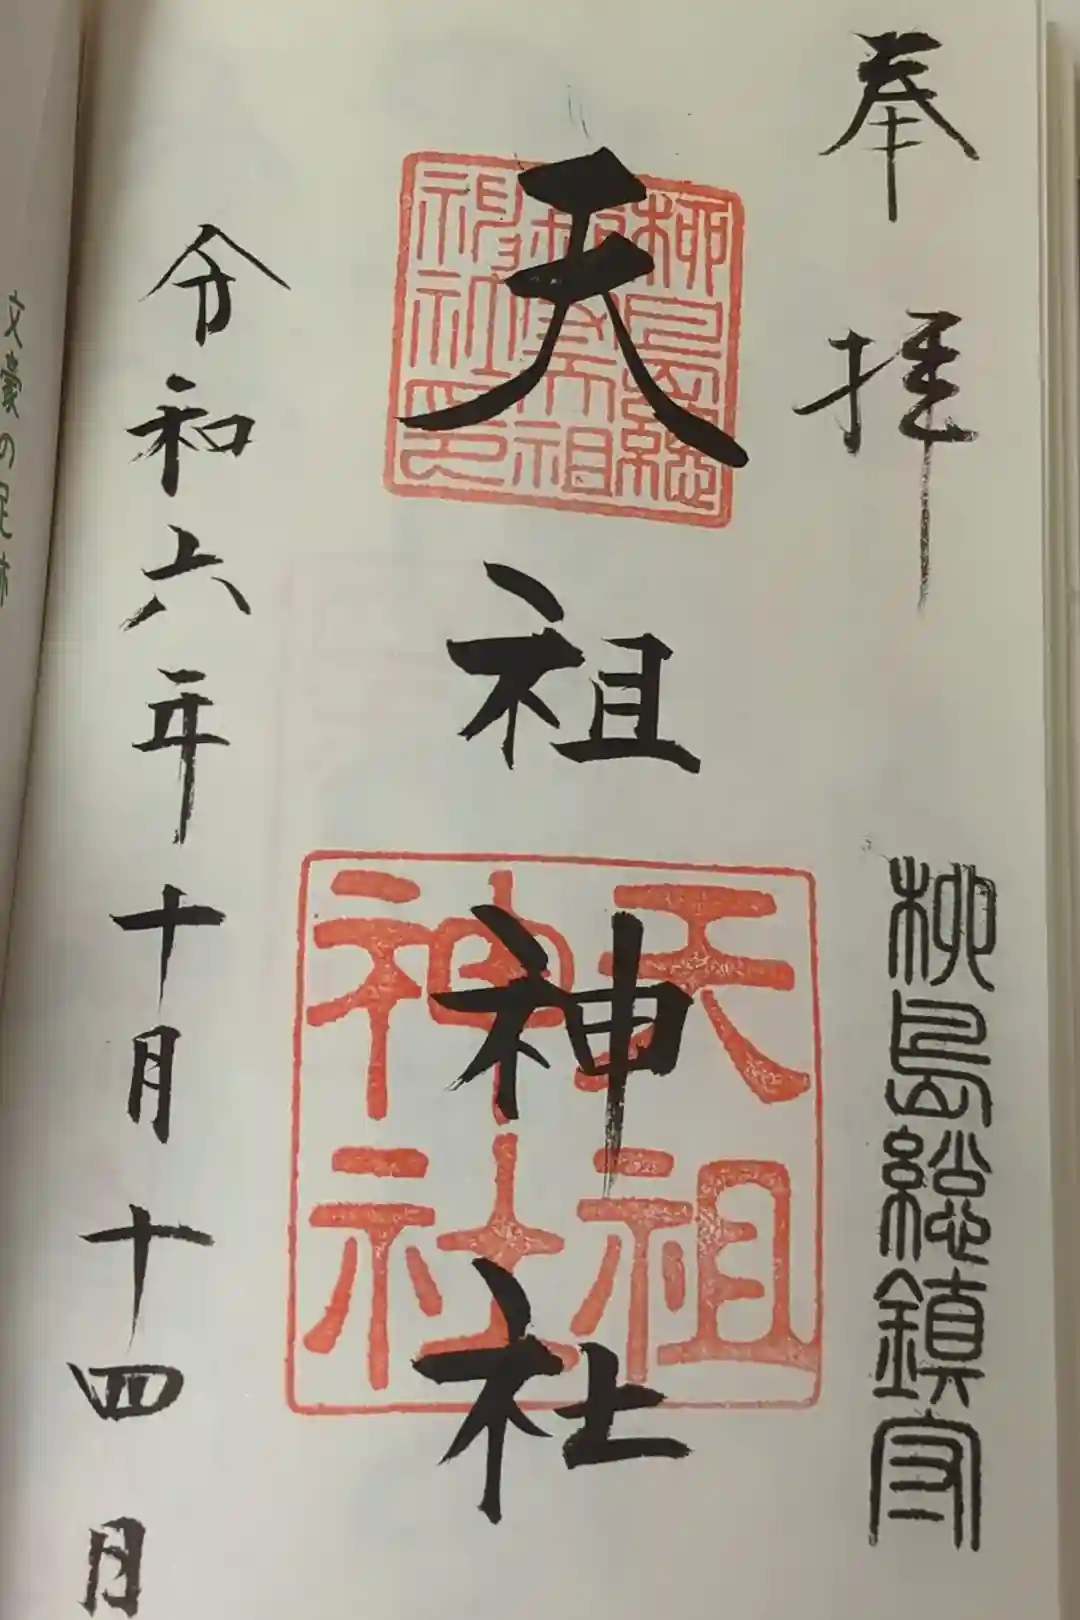 奉拝
柳島総鎮守
柳島総
鎮守天祖
神社印
天祖神社
天祖
神社
令和六年十月十四日
文豪の足跡